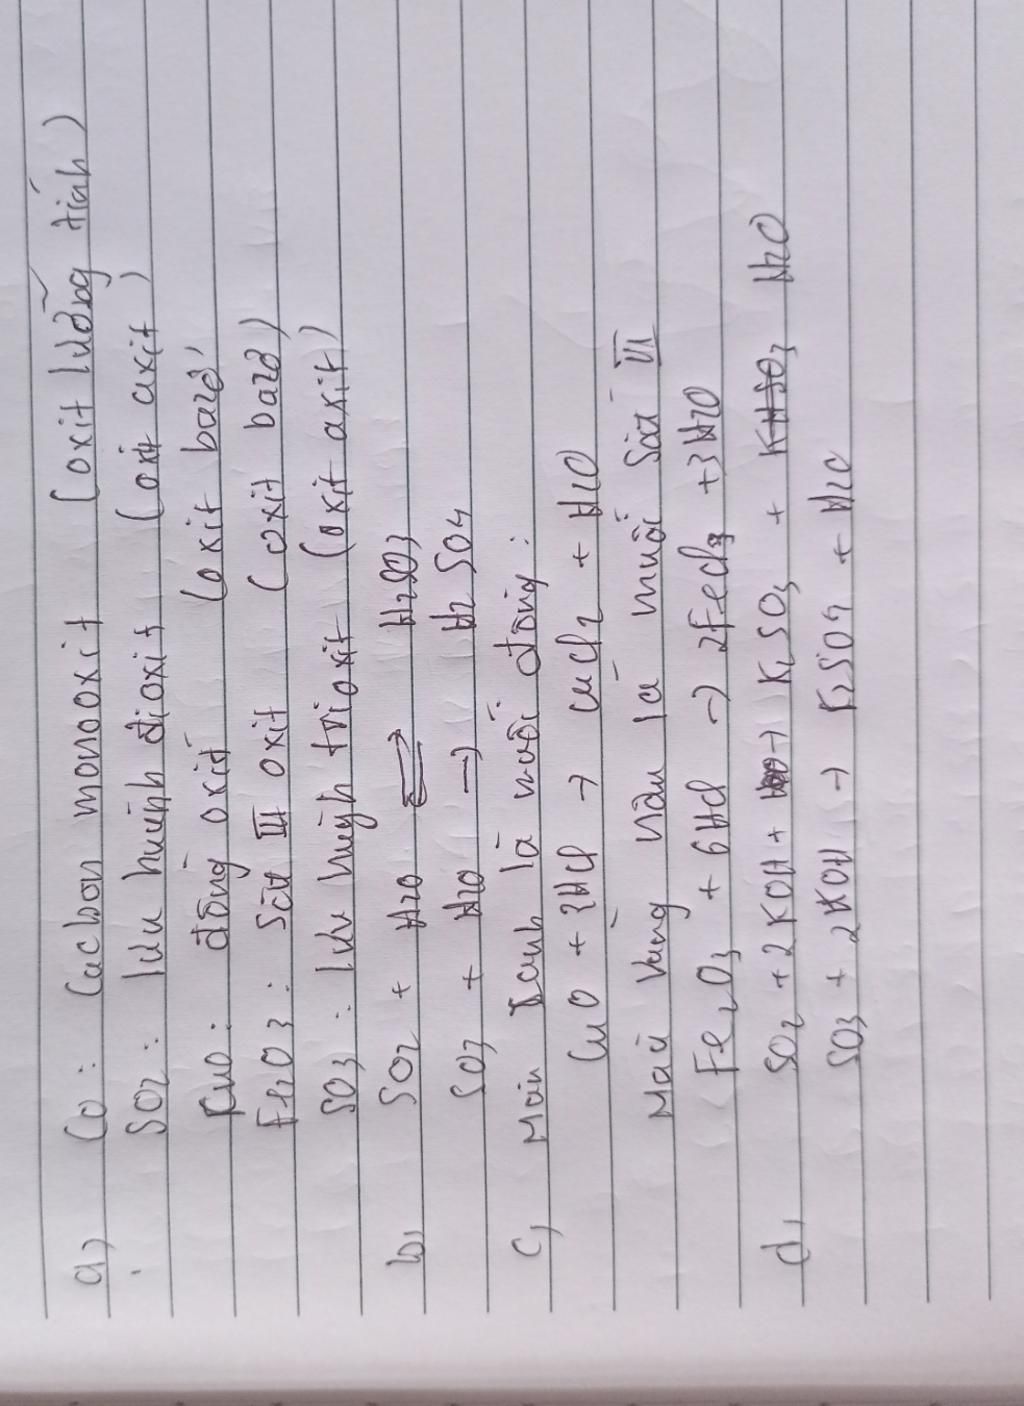 a, CO : Cacbon monooxit (oxit lưỡng tính)
SO2 : lưu huỳnh đioxit (oxit axit)
CuO : đồng oxit (oxit bazơ)
Fe2O3 : Sắt III oxit (oxit bazơ)
SO3 : lưu huỳnh trioxit (oxit axit)
b, SO2 + H2O ⇌ H2SO3
SO3 + H2O → H2SO4
c, Màu xanh là muối đồng :
CuO + 2HCl → CuCl2 + H2O
Màu vàng nâu là muối sắt III
Fe2O3 + 6HCl → 2FeCl3 + 3H2O
d, SO2 + 2KOH → K2SO3 + H2O
SO3 + 2KOH → K2SO4 + H2O